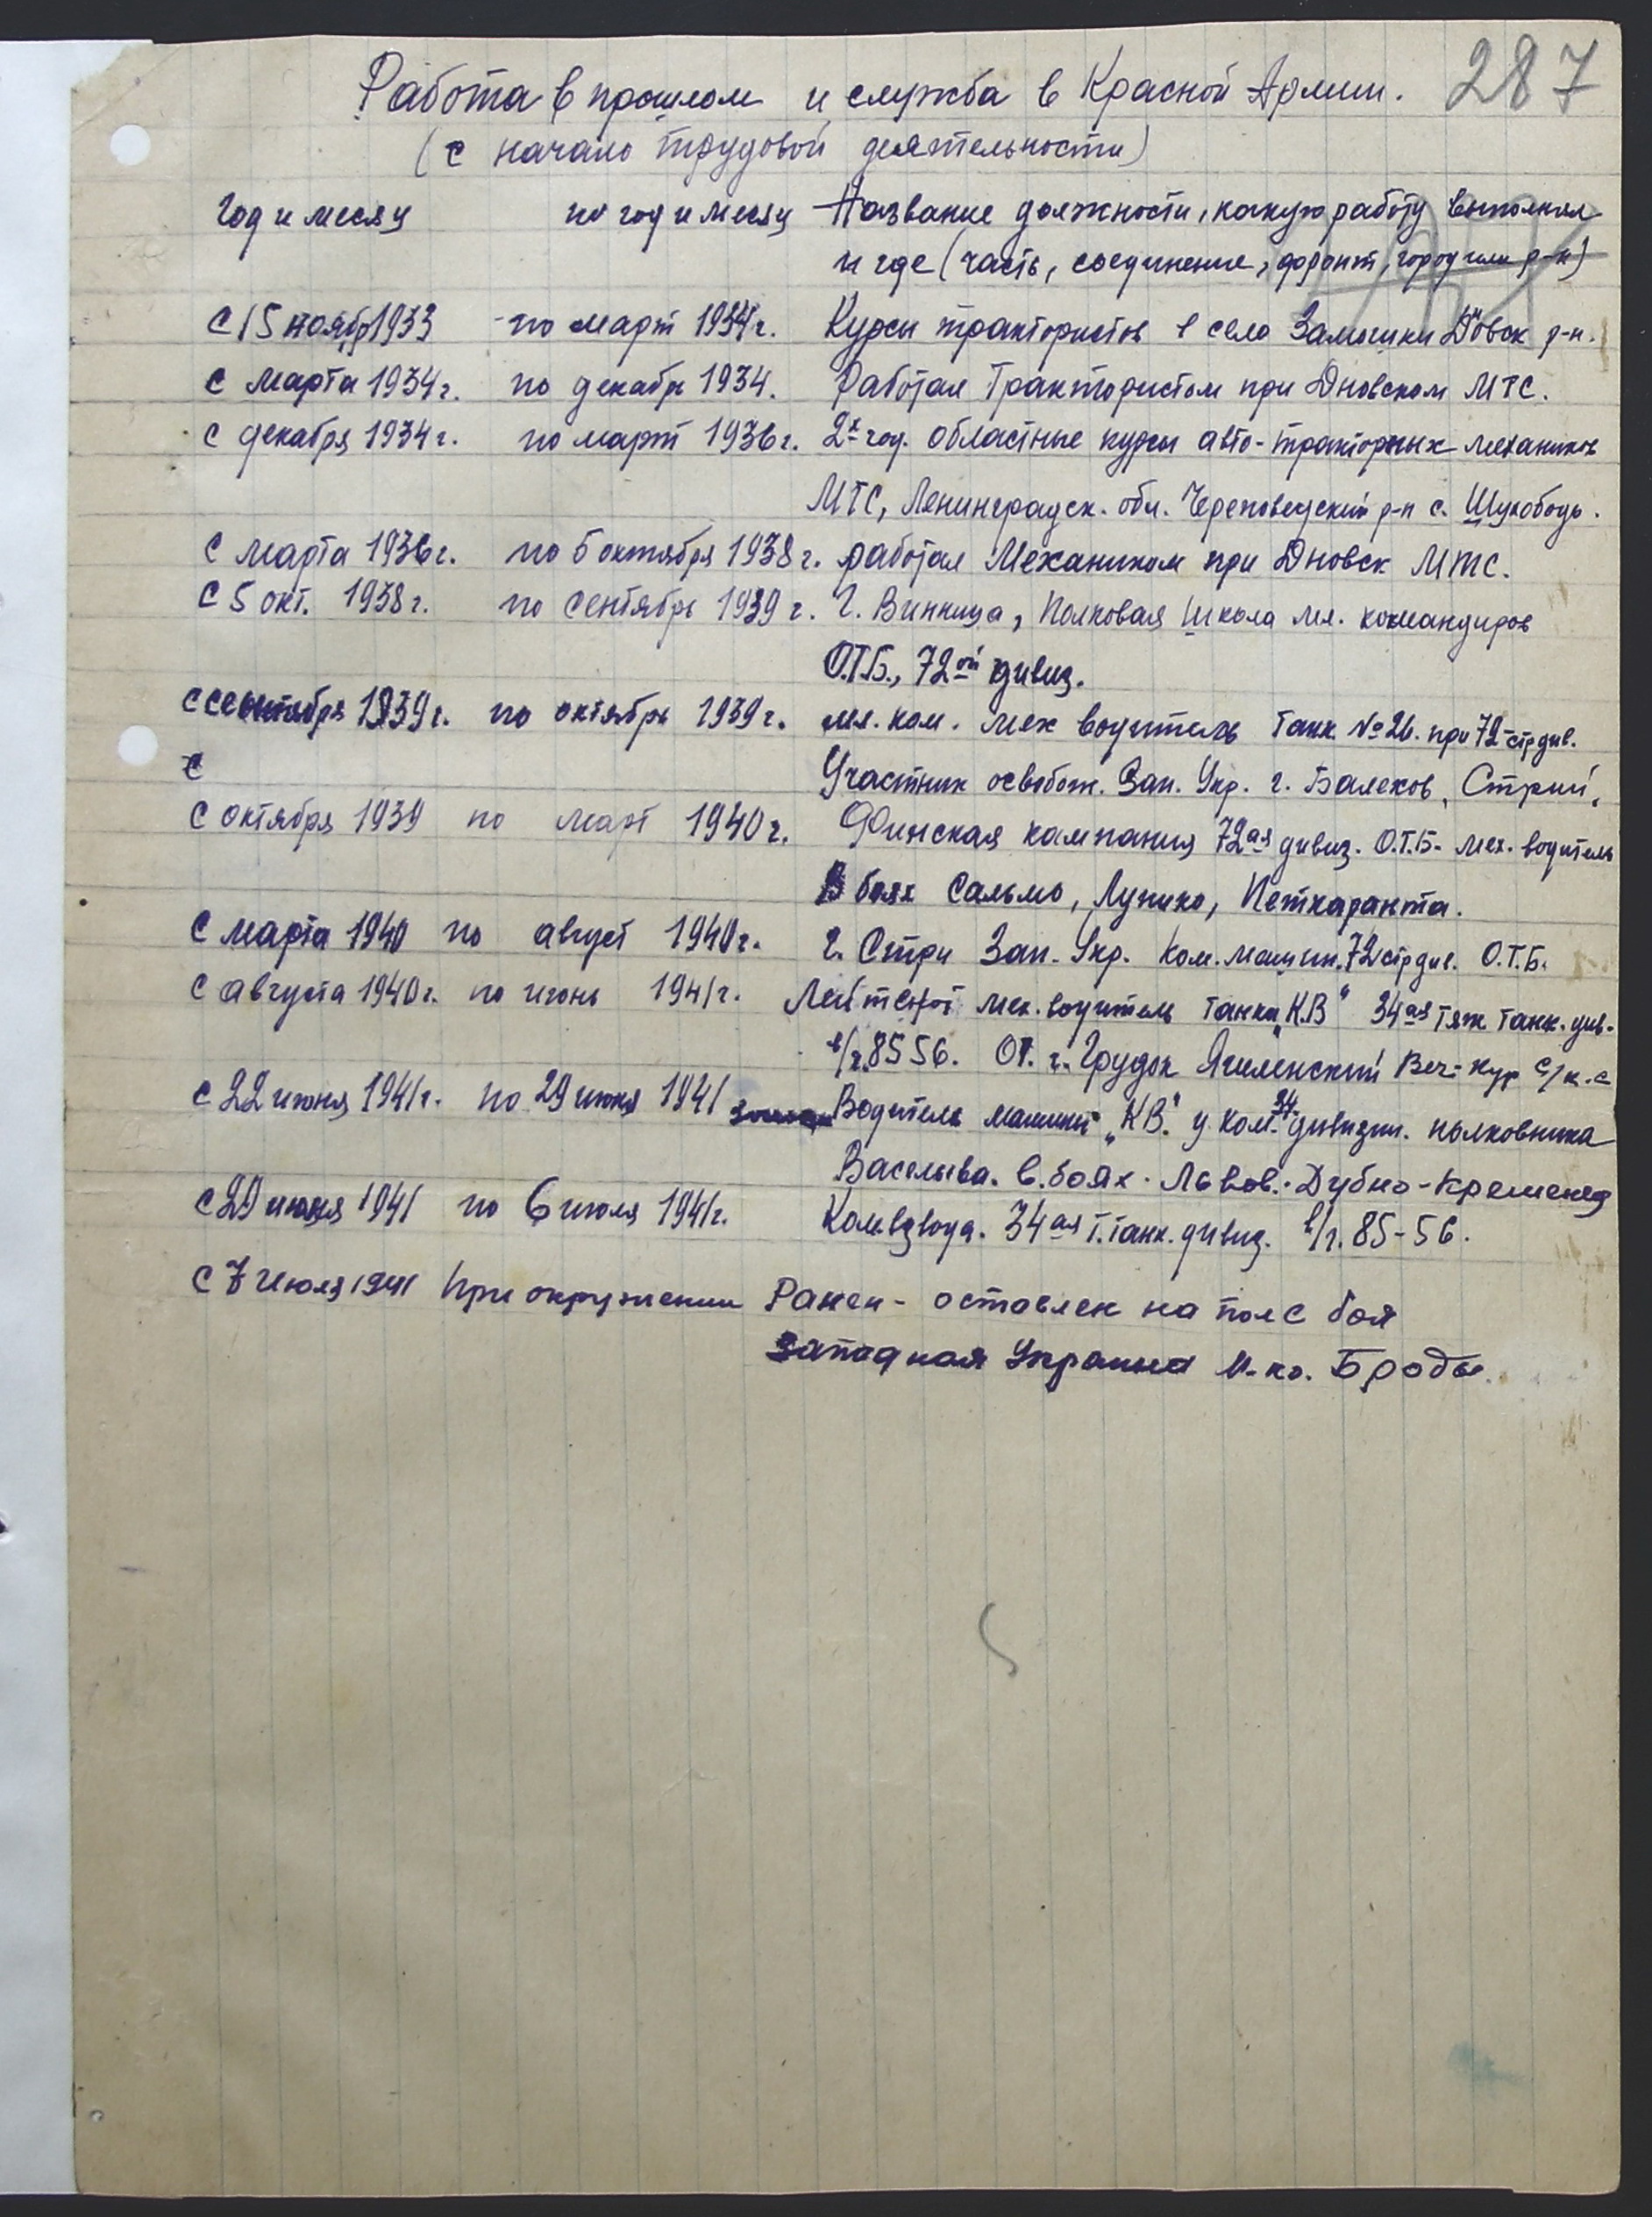 287
Работа в прошлом и служба в Красной Армии.
(с начало трудовой деятельности)
Год и месяц по год и месяц Название должности, какую работу выполнял
и где (часть, соединение, фронт, город или р-н)
С 15 ноябр 1933 по март 1934 г. Курсы трактористов в село Замошки Дновск р-н.
С марта 1934 г. по декабрь 1934. Работал Трактористом при Дновском МТС.
С декабря 1934 г. по март 1936 г. 2х год. областные курсы авто-тракторных механиков
МТС, Ленинградск. обл. Череповецкий р-н с. Шухободь.
С марта 1936 г. по 5 октября 1938 г. работал Механиком при Дновск МТС.
С 5 окт. 1938 г. по Сентябрь 1939 г. Г. Винница, Полковая Школа мл. командиров
О.Т.Б., 72ой дивиз.
С сентября 1939 г. по октябрь 1939 г. мл. ком. мех водитель Танк № 26. при 72 стр див.
С Участник освобож. Зап. Укр. г. Балехов, Стрий,
С октября 1939 по март 1940 г. Финская кампания 72ая дивиз. О.Т.Б. мех. водитель
В боях Сальмо, Лунико, Петкаранта.
С марта 1940 по август 1940 г. г. Стри Зап. Укр. Ком. машин. 72 стр див. О.Т.Б.
С августа 1940 г. по июнь 1941 г. Лейтенат мех. водитель танка „К.В" 34ая тяж танк. див.
в/ч. 8556. От. г. Грудок Ягиленский Веч. кур с/к.с
С 22 июня 1941 г. по 29 июня 1941 Водитель машины „КВ." у ком. 34 дивизии. полковника
Васельева. в. боях. Львов. Дубно-Кременец
С 29 июня 1941 по 6 июля 1941 г. Ком. взвода. 34ая Т. танк. дивиз. в/ч. 85-56.
С 7 Июля 1941 При окружении Ранен - оставлен на поле боя
Западная Украина м-ко. Броды.